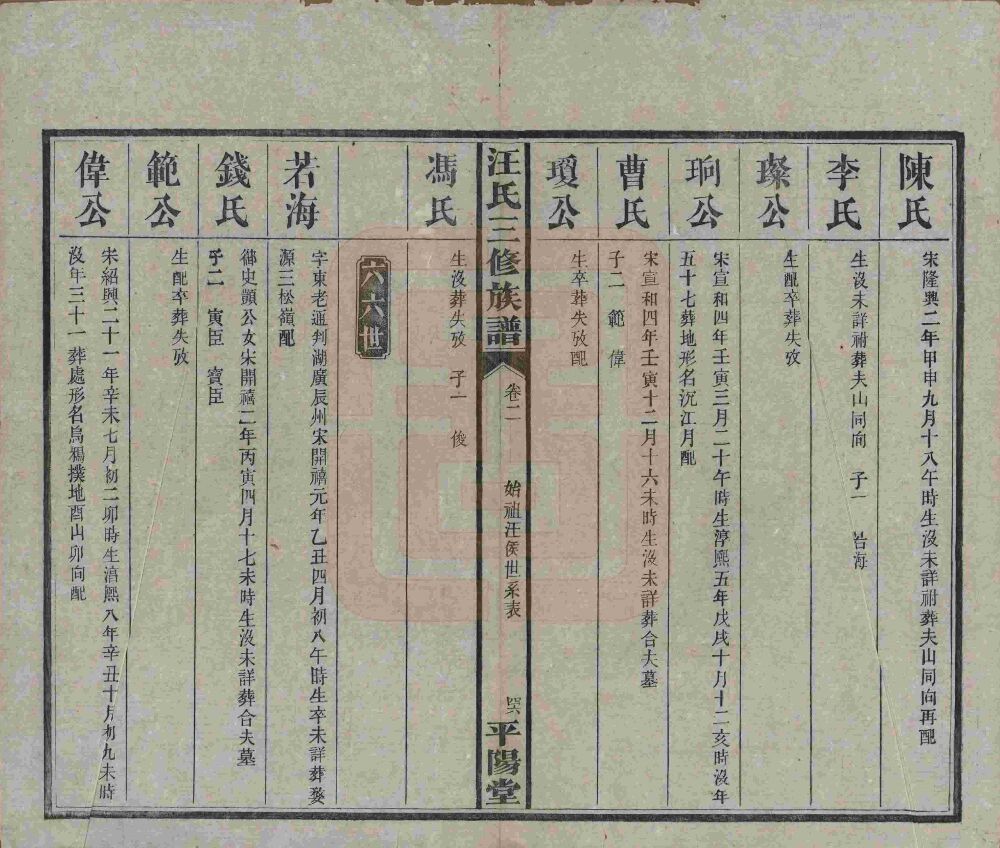 陳氏
宋隆興二年甲申九月十八午時生沒未詳祔葬夫山同向再配
李氏
生沒未詳祔葬夫山同向 子一 若海
璨公
生配卒葬失攷
珦公
宋宣和四年壬寅三月二十午時生淳熙五年戊戌十月十二亥時沒年
五十七葬地形名沉江月配
曹氏
宋宣和四年壬寅十二月十六未時生沒未詳葬合夫墓
子二 範 偉
瓊公
生卒葬失攷配
汪氏三修族譜
卷二
始祖汪侯世系表
平陽堂
馮氏
生沒葬失攷 子一 俊
六六世
若海
字東老通判湖廣辰州宋開禧元年乙丑四月初八午時生卒未詳葬婺
源三松嶺配
錢氏
御史顗公女宋開禧二年丙寅四月十七未時生沒未詳葬合夫墓
子二 寅臣 寶臣
範公
生配卒葬失攷
偉公
宋紹興二十一年辛未七月初二卯時生淳熙八年辛丑十月初九未時
沒年三十一葬處形名烏鴉撲地酉山卯向配